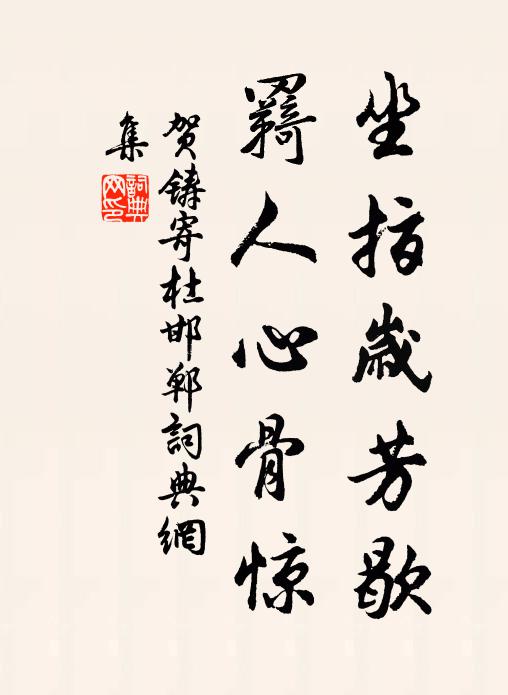 坐指岁芳歇
羇人心骨惊
贺铸寄杜邯郸词典網
集
詞典
网印